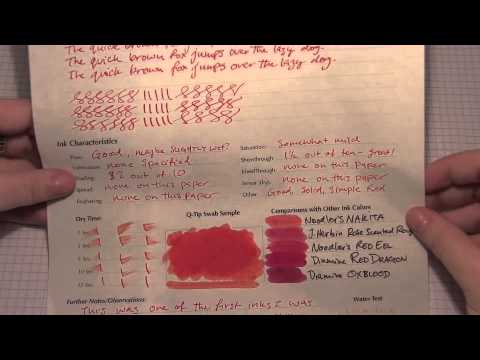 The quick brown fox jumps over the lazy dog.
The quick brown fox jumps over the lazy dog.
Ink Characteristics
Flow: Good, maybe wet? Saturation: Somewhat mild
none specified Showthrough: 1½ out of ten - great!
8½ out of 10 Bleedthrough: none on this paper
Spread: none on this paper none on this paper
Feathering: none on this paper Other: Good, Solid, Simple Red
Dry Time Q-Tip Swab Sample Comparisons with Other Ink Colors
Noodler's NAKITA
J. Herbin Rose
Noodler's RED EEL
Diamine RED DRAGON
Diamine OXBLOOD
Further Notes/Observations: Water Test
This was one of the first inks I was